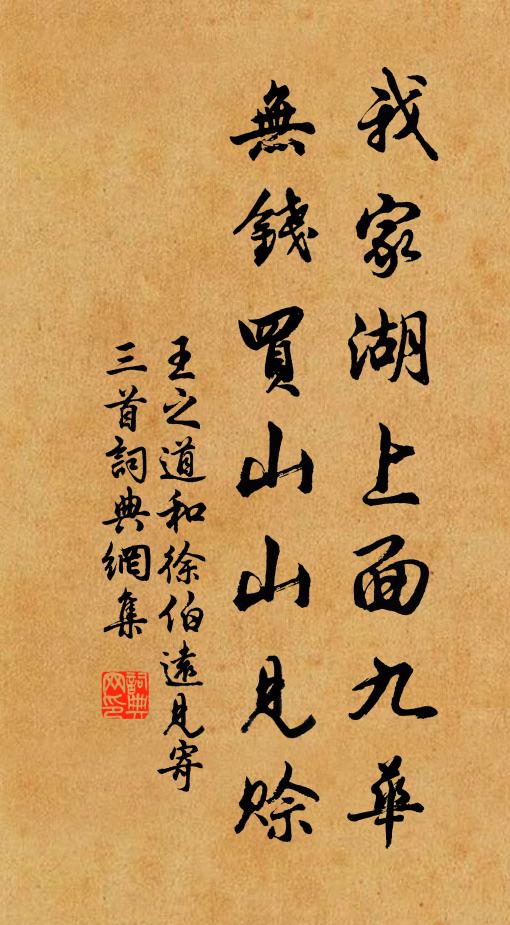 我家湖上面九華
無錢買山山見賒
王之道和徐伯遠見寄
三首詞典網集
詞典網印